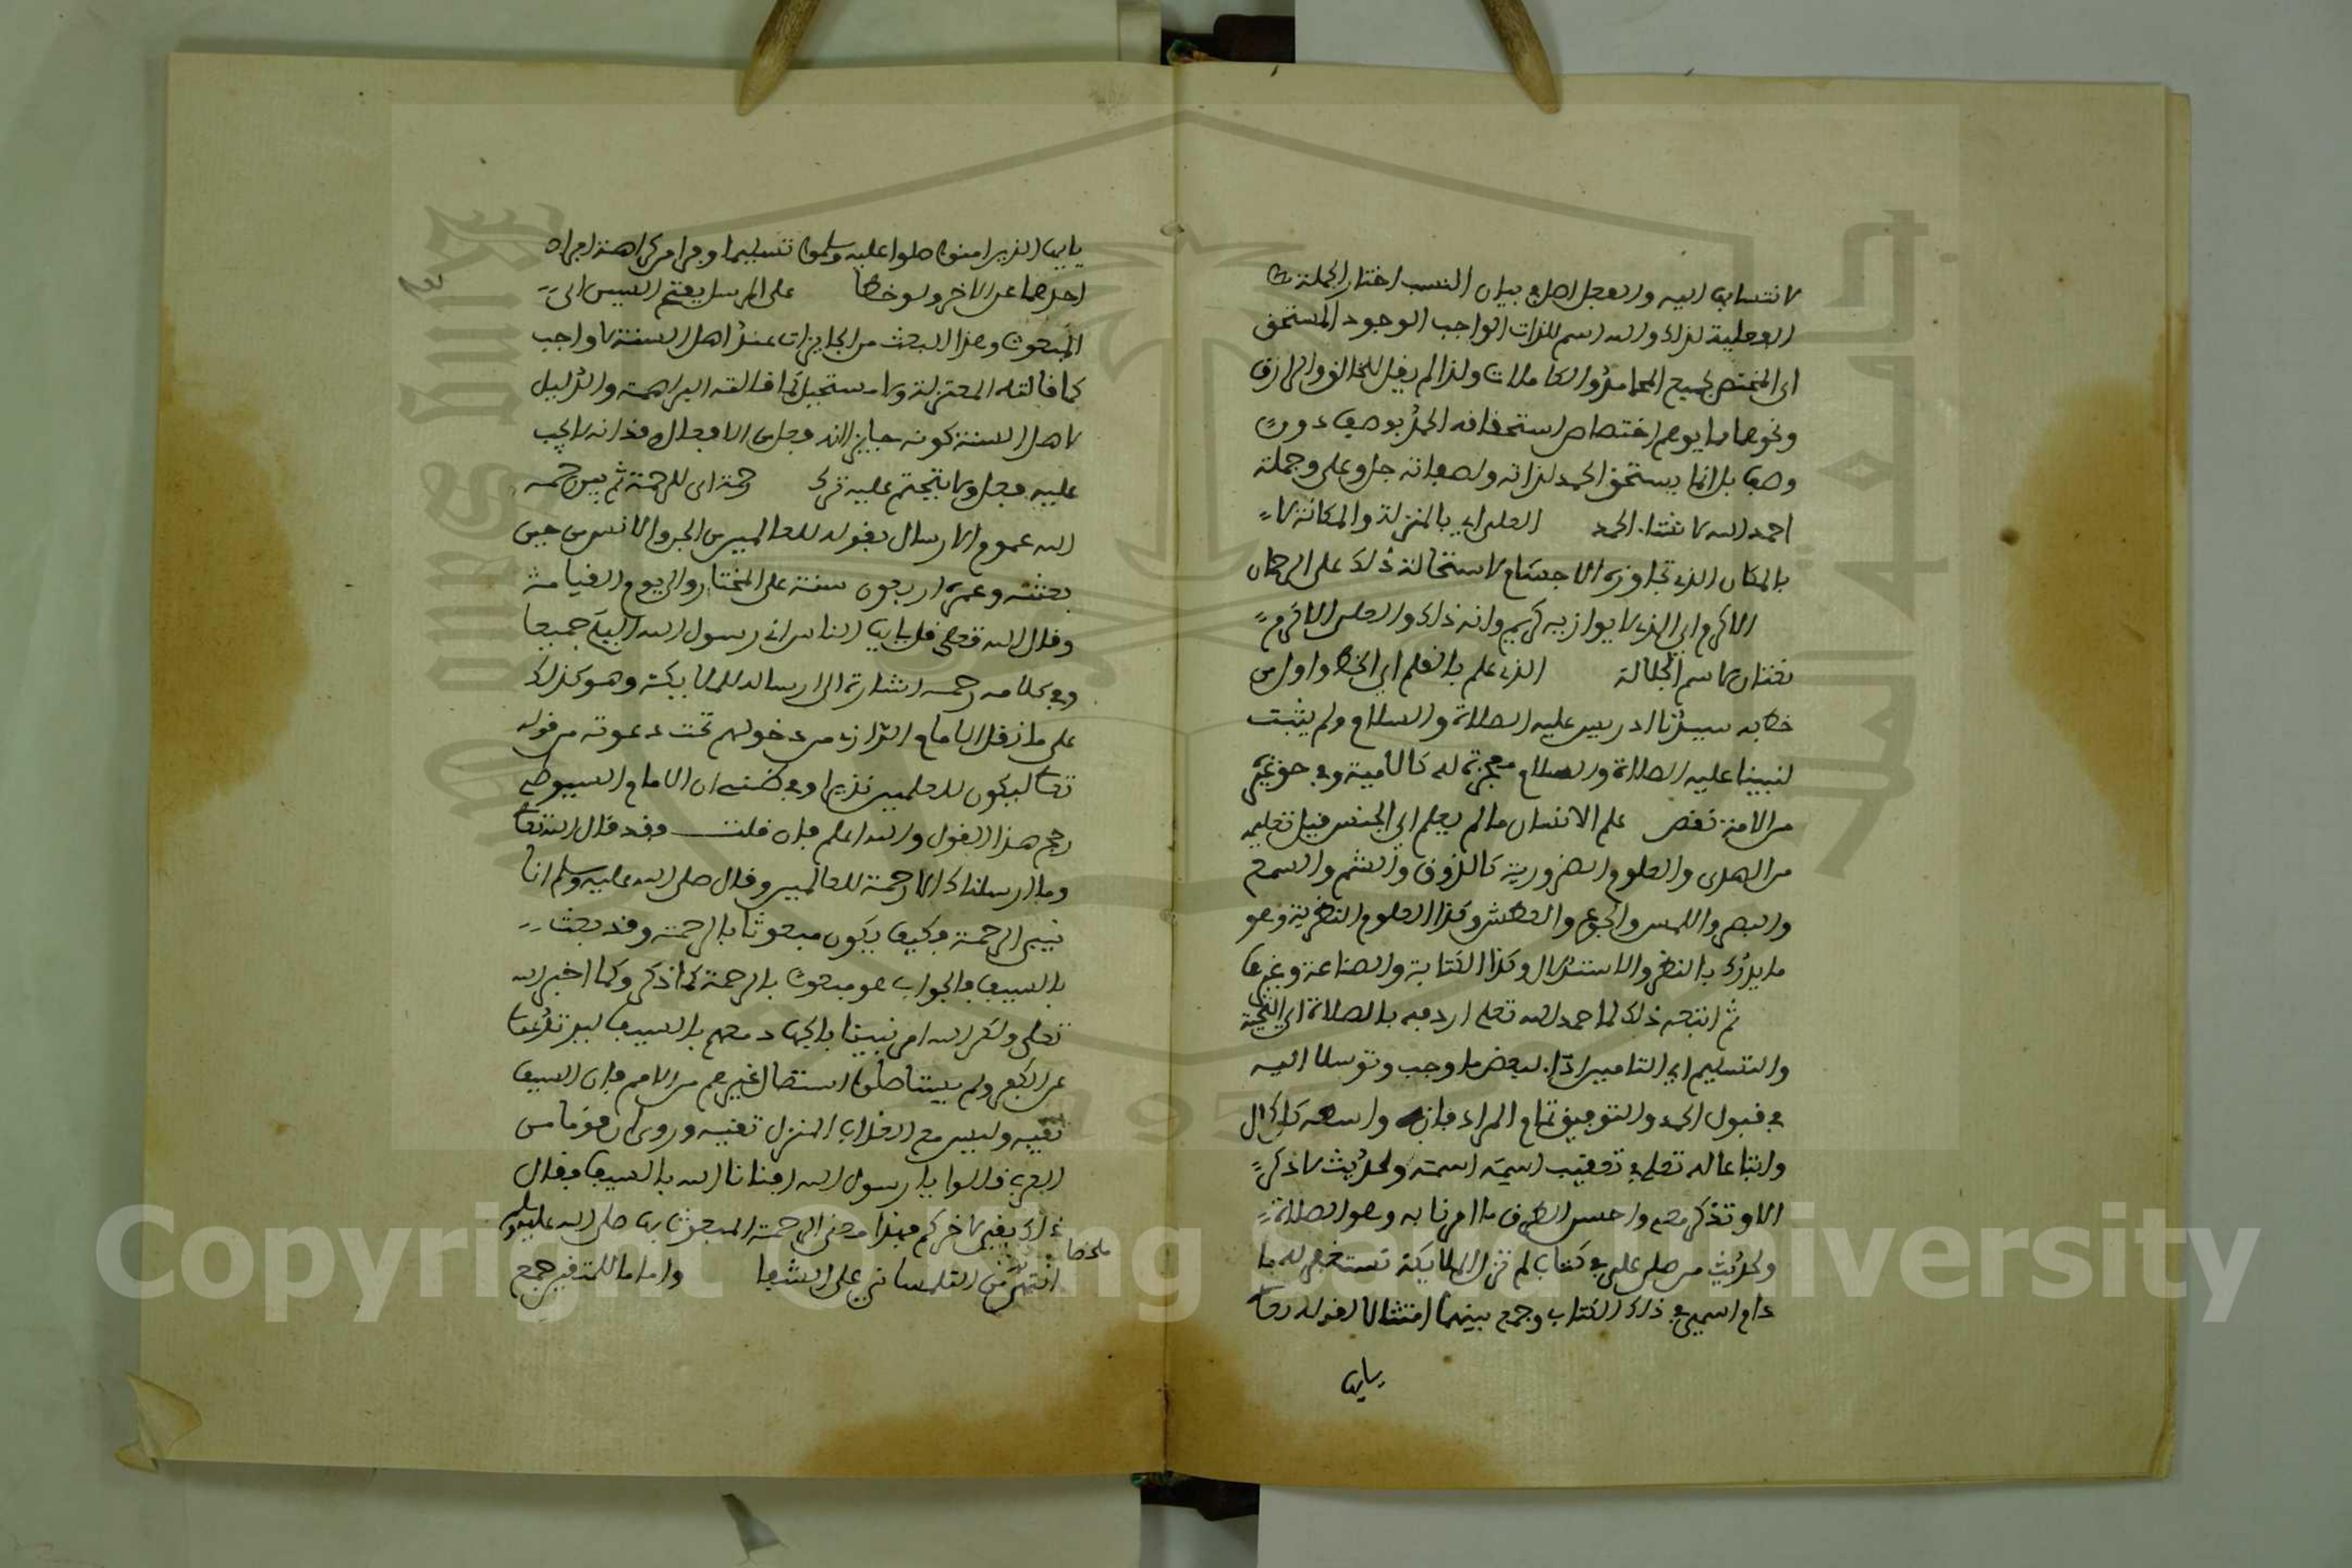 لانتسابها اليه والفعل اصل في بيان النسب اختار الجملة
الفعلية لذلك والله اسم للذات الواجب الوجود المستحق
اي المختص بجميع المحامد والكاملات ولذا لم يقل للخالق والرازق
ونحوهما مما يوهم اختصاص استحقاقه الحمد بوصف دون
وصف بل انما يستحق الحمد لذاته ولصفاته جل وعلى وجملة
احمد الله لانشاء الحمد العلي اي بالمنزلة والمكانة لا
بالمكان الذي تجاوزه الاجسام لاستحالة ذلك على الرحمان
الاكرم اي الذي لا يوازيه كريم وانه ذلك والعلي الاكرم
نعتان لاسم الجلالة الذي علم بالقلم اي الخط واول من
خط به سيدنا ادريس عليه الصلاة والسلام ولم يثبت
لنبينا عليه الصلاة والسلام معجزة له كالامية وفي حق غيره
من الامة نقص علم الانسان ما لم يعلم اي الجنس قبل تعليمه
من الهدى والعلوم الضرورية كالذوق والشم والسمع
والبصر واللمس والجوع والعطش وكذا العلوم النظرية وهو
ما يدرك بالنظر والاستدلال وكذا الكتابة والصناعة وغيرها
ثم انتجه ذلك لما حمد الله تعلى اردفه بالصلاة اي التحية
والتسليم اي التامين اداء لبعض ما وجب وتوسلا اليه
في قبول الحمد والتوفيق تمام المراد فانه واسعه كل كمال
واتباعا له تعلى في تعقيب اسمه اسمه ولحديث لا ذكر
الا وتذكر معي واحسن الطرق ما امرنا به وهو الصلاة
ولحديث من صلى علي في كتاب لم تزل الملايكة تستغفر له ما
دام اسمي في ذلك الكتاب وجمع بينهما امتثالا لقوله تعا
يايها
يايها الذين امنوا صلوا عليه وسلموا تسليما وفرا من كراهة افراد
احدهما عن الاخر ولو خطا على المرسل بفتح السين اي
المبعوث وهذا البعث من الجايزات عند اهل السنة لا واجب
كما قالته المعتزلة ولا مستحيل كما قالته البراهمة والدليل
لاهل السنة كونه جايزا انه فعل من الافعال وقد انه لا يجب
عليه فعل ولا يتحتم عليه ترك رحمة اي للرحمة ثم بين رحمه
الله عموم الارسال بقوله للعالمين من الجن والانس من حين
بعثته وعمره اربعون سنة على المختار والى يوم القيامة
وقال الله تعلى قل يايها الناس اني رسول الله اليكم جميعا
وفي كلامه رحمه اشارة الى ارساله للملايكة وهو كذلك
على ما نقل الامام الرازي من دخولهم تحت دعوته من قوله
تعا ليكون للعلمين نذيرا وفي ظني ان الامام السيوطي
رجح هذا القول والله اعلم فان قلت وقد قال الله تعا
وما ارسلناك الا رحمة للعالمين وقال صلى الله عليه وسلم انا
نبي الرحمة فكيف يكون مبعوثا بالرحمة وقد بعث
بالسيف فالجواب هو مبعوث بالرحمة كما ذكر وكما اخبر الله
تعلى ولكن الله امر نبينا بالجهاد معهم بالسيف ليرتدعوا
عن الكفر ولم يستاصلوا استئصال غيرهم من الامم فان السيف
بقية وليس مع العذاب المنزل بقية وروى ان قوما من
العرب قالوا يا رسول الله افنانا الله بالسيف فقال
ذلك يبقي لاخركم فهذا معنى الرحمة المبعوث بها صلى الله عليه وسلم
انتهى من التلمساني على الشفا واماما للمتقين جمع
ملخصا